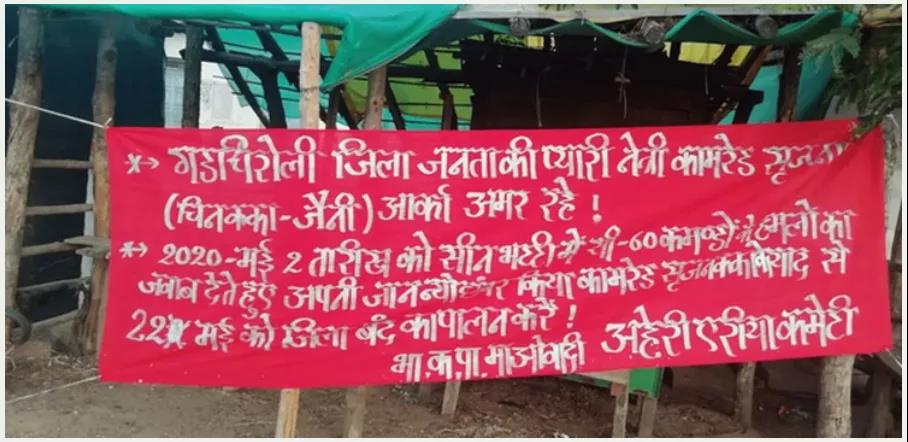 * → गडचिरोली जिला जनता की प्यारी नेत्री कामरेड सृजना
(चिनक्का-जैनी) आर्का अमर रहे !
* → 2020-मई 2 तारीख को सीन भट्टी में सी-60 कमाण्डो के हमलों का
जवाब देते हुए अपनी जान न्योछावर किया कामरेड सृजनक्का की याद से
22 मई को जिला बंद का पालन करें !
भा.क.पा. माओवादी अहेरी एरीया कमेटी